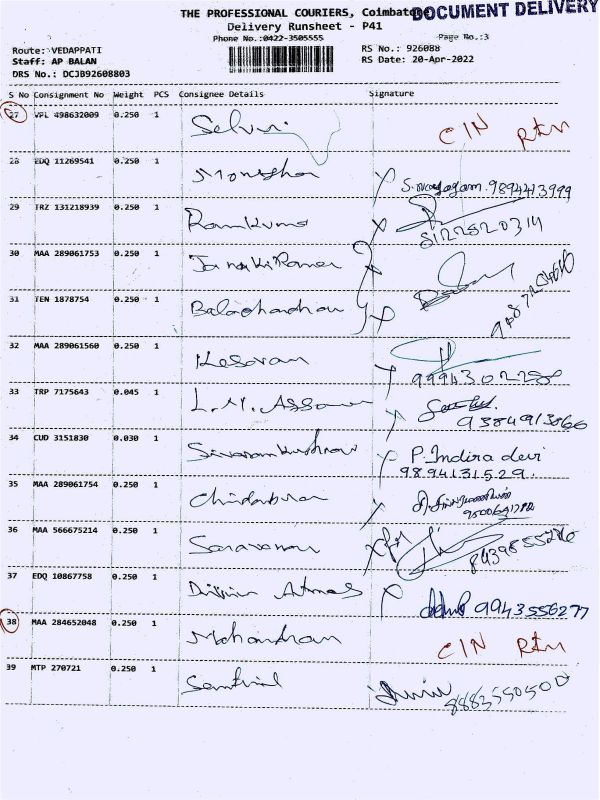 THE PROFESSIONAL COURIERS, Coimbatore DOCUMENT DELIVERY
Delivery Runsheet - P41
Phone No.:0422-3505555
Page No.:3
Route: VEDAPPATI
RS No.: 926088
Staff: AP BALAN
RS Date: 20-Apr-2022
DRS No.: DCJB92608803
S No Consignment No Weight PCS Consignee Details Signature
27 VPL 498632009 0.250 1 Selvi CIN RTN
28 EDQ 11269541 0.250 1 9894413999
29 TRZ 131218939 0.250 1 Ramkumar 8122520314
30 MAA 289061753 0.250 1 Janaki Raman
31 TEN 1878754 0.250 1 Balachandran
32 MAA 289061560 0.250 1 Kesavan
9994302250
33 TRP 7175643 0.045 1 L.M.
9384913066
34 CUD 3151830 0.030 1 P. Indira devi
9894131529.
35 MAA 289061754 0.250 1
36 MAA 566675214 0.250 1 Saravanan
37 EDQ 10867758 0.250 1 9943556277
38 MAA 284652048 0.250 1 CIN RTN
39 MTP 270721 0.250 1 Senthil
8883550500